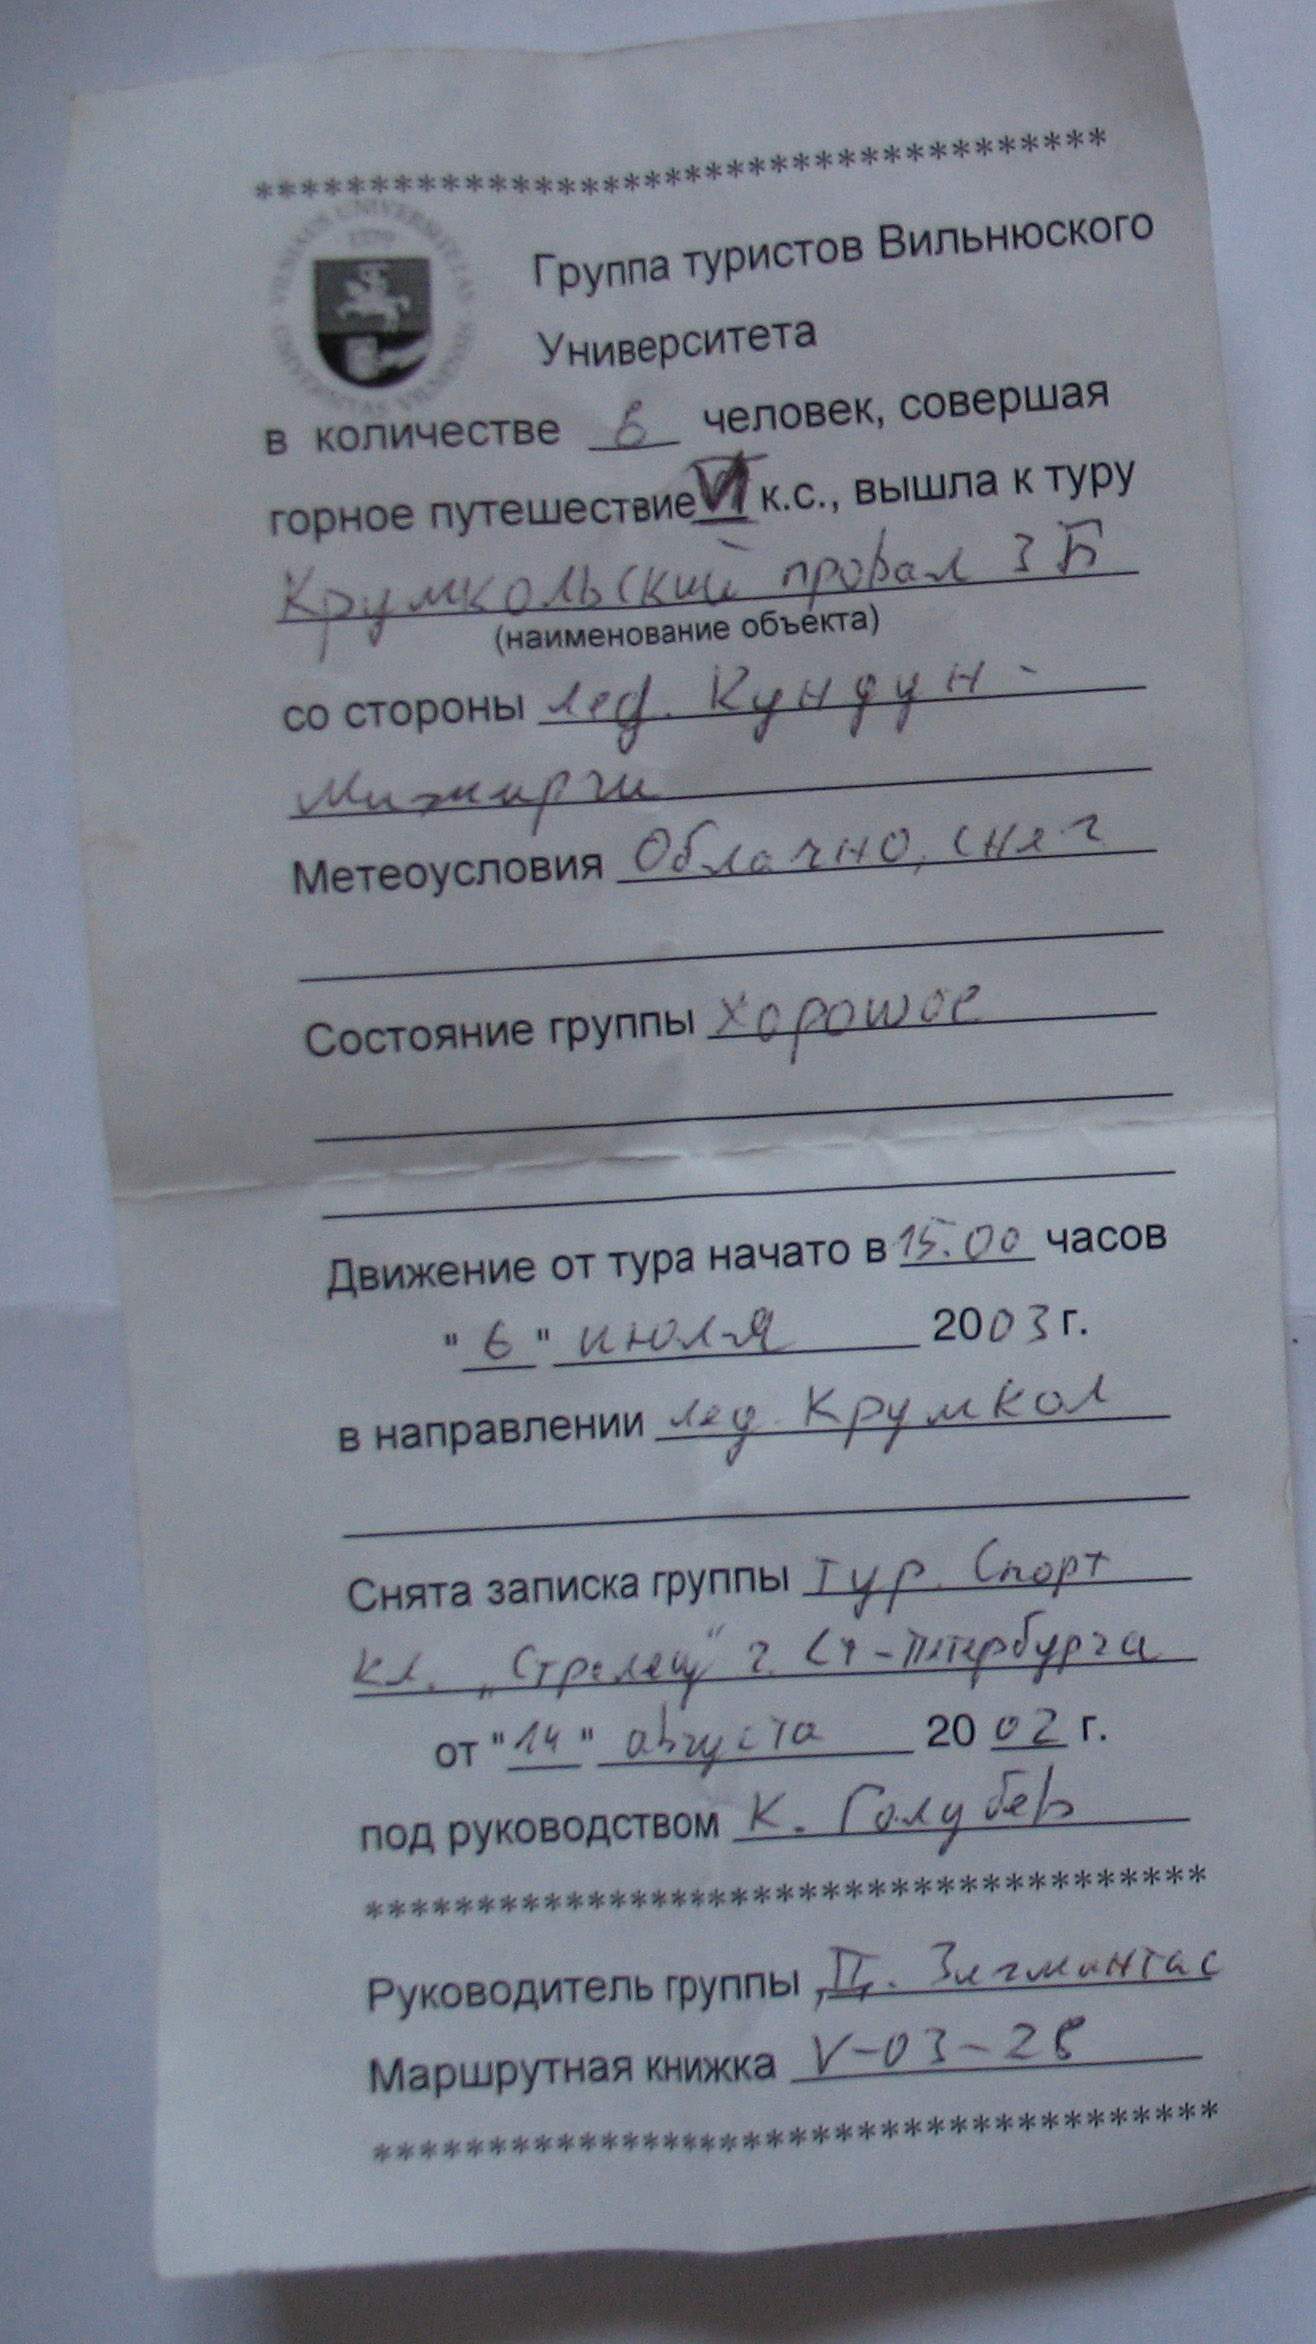 ***********************************
VILNIUS UNIVERSITETAS
1579
Группа туристов Вильнюского
Университета
в количестве 8 человек, совершая
горное путешествие VI к.с., вышла к туру
Крумкольский провал 3Б
(наименование объекта)
со стороны лед. Кундун-
Мижирги
Метеоусловия Облачно, снег
Состояние группы хорошое
Движение от тура начато в 15.00 часов
"6" июля 2003 г.
в направлении лед. Крумкол
Снята записка группы Тур. Спорт
кл. „Стрелец" г. Ст-Петербурга
от "14" августа 2002 г.
под руководством К. Голубев
***********************************
Руководитель группы Зигмантас
Маршрутная книжка V-03-28
***********************************